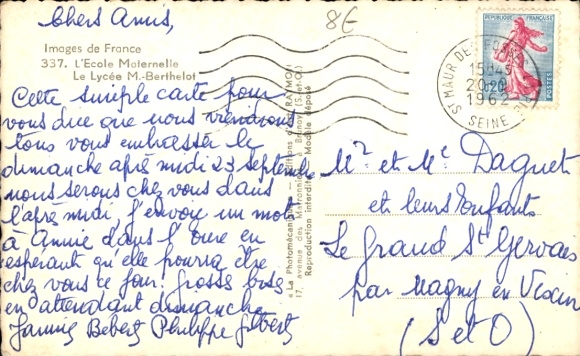 Chers Amis,
8€
Images de France
337. L'Ecole Maternelle
Le Lycée M.-Berthelot
Cette simple carte pour
vous dire que nous viendrons
tous vous embrasser le
dimanche après midi 23 septembre
nous serons chez vous dans
l'après midi, j'envoie un mot
à Annie dans l'Oise en
espérant qu'elle pourra être
chez vous ce jour. grosses bises
en attendant dimanche
Jannie Bebert Philippe Gilbert
« La Photomécanique » — Editions d'Art RAYMON
17, avenue des Marronniers, à Brunoy (S.-et-O.)
Reproduction interdite — Modèle déposé
REPUBLIQUE FRANÇAISE
0,20
POSTES
ST MAUR DES FOSSES
15H45
20-9
1962
SEINE
Mr et Me Daguet
et leurs Enfants
Le Grand St Gervais
par Magny en Vexin
(S et O)